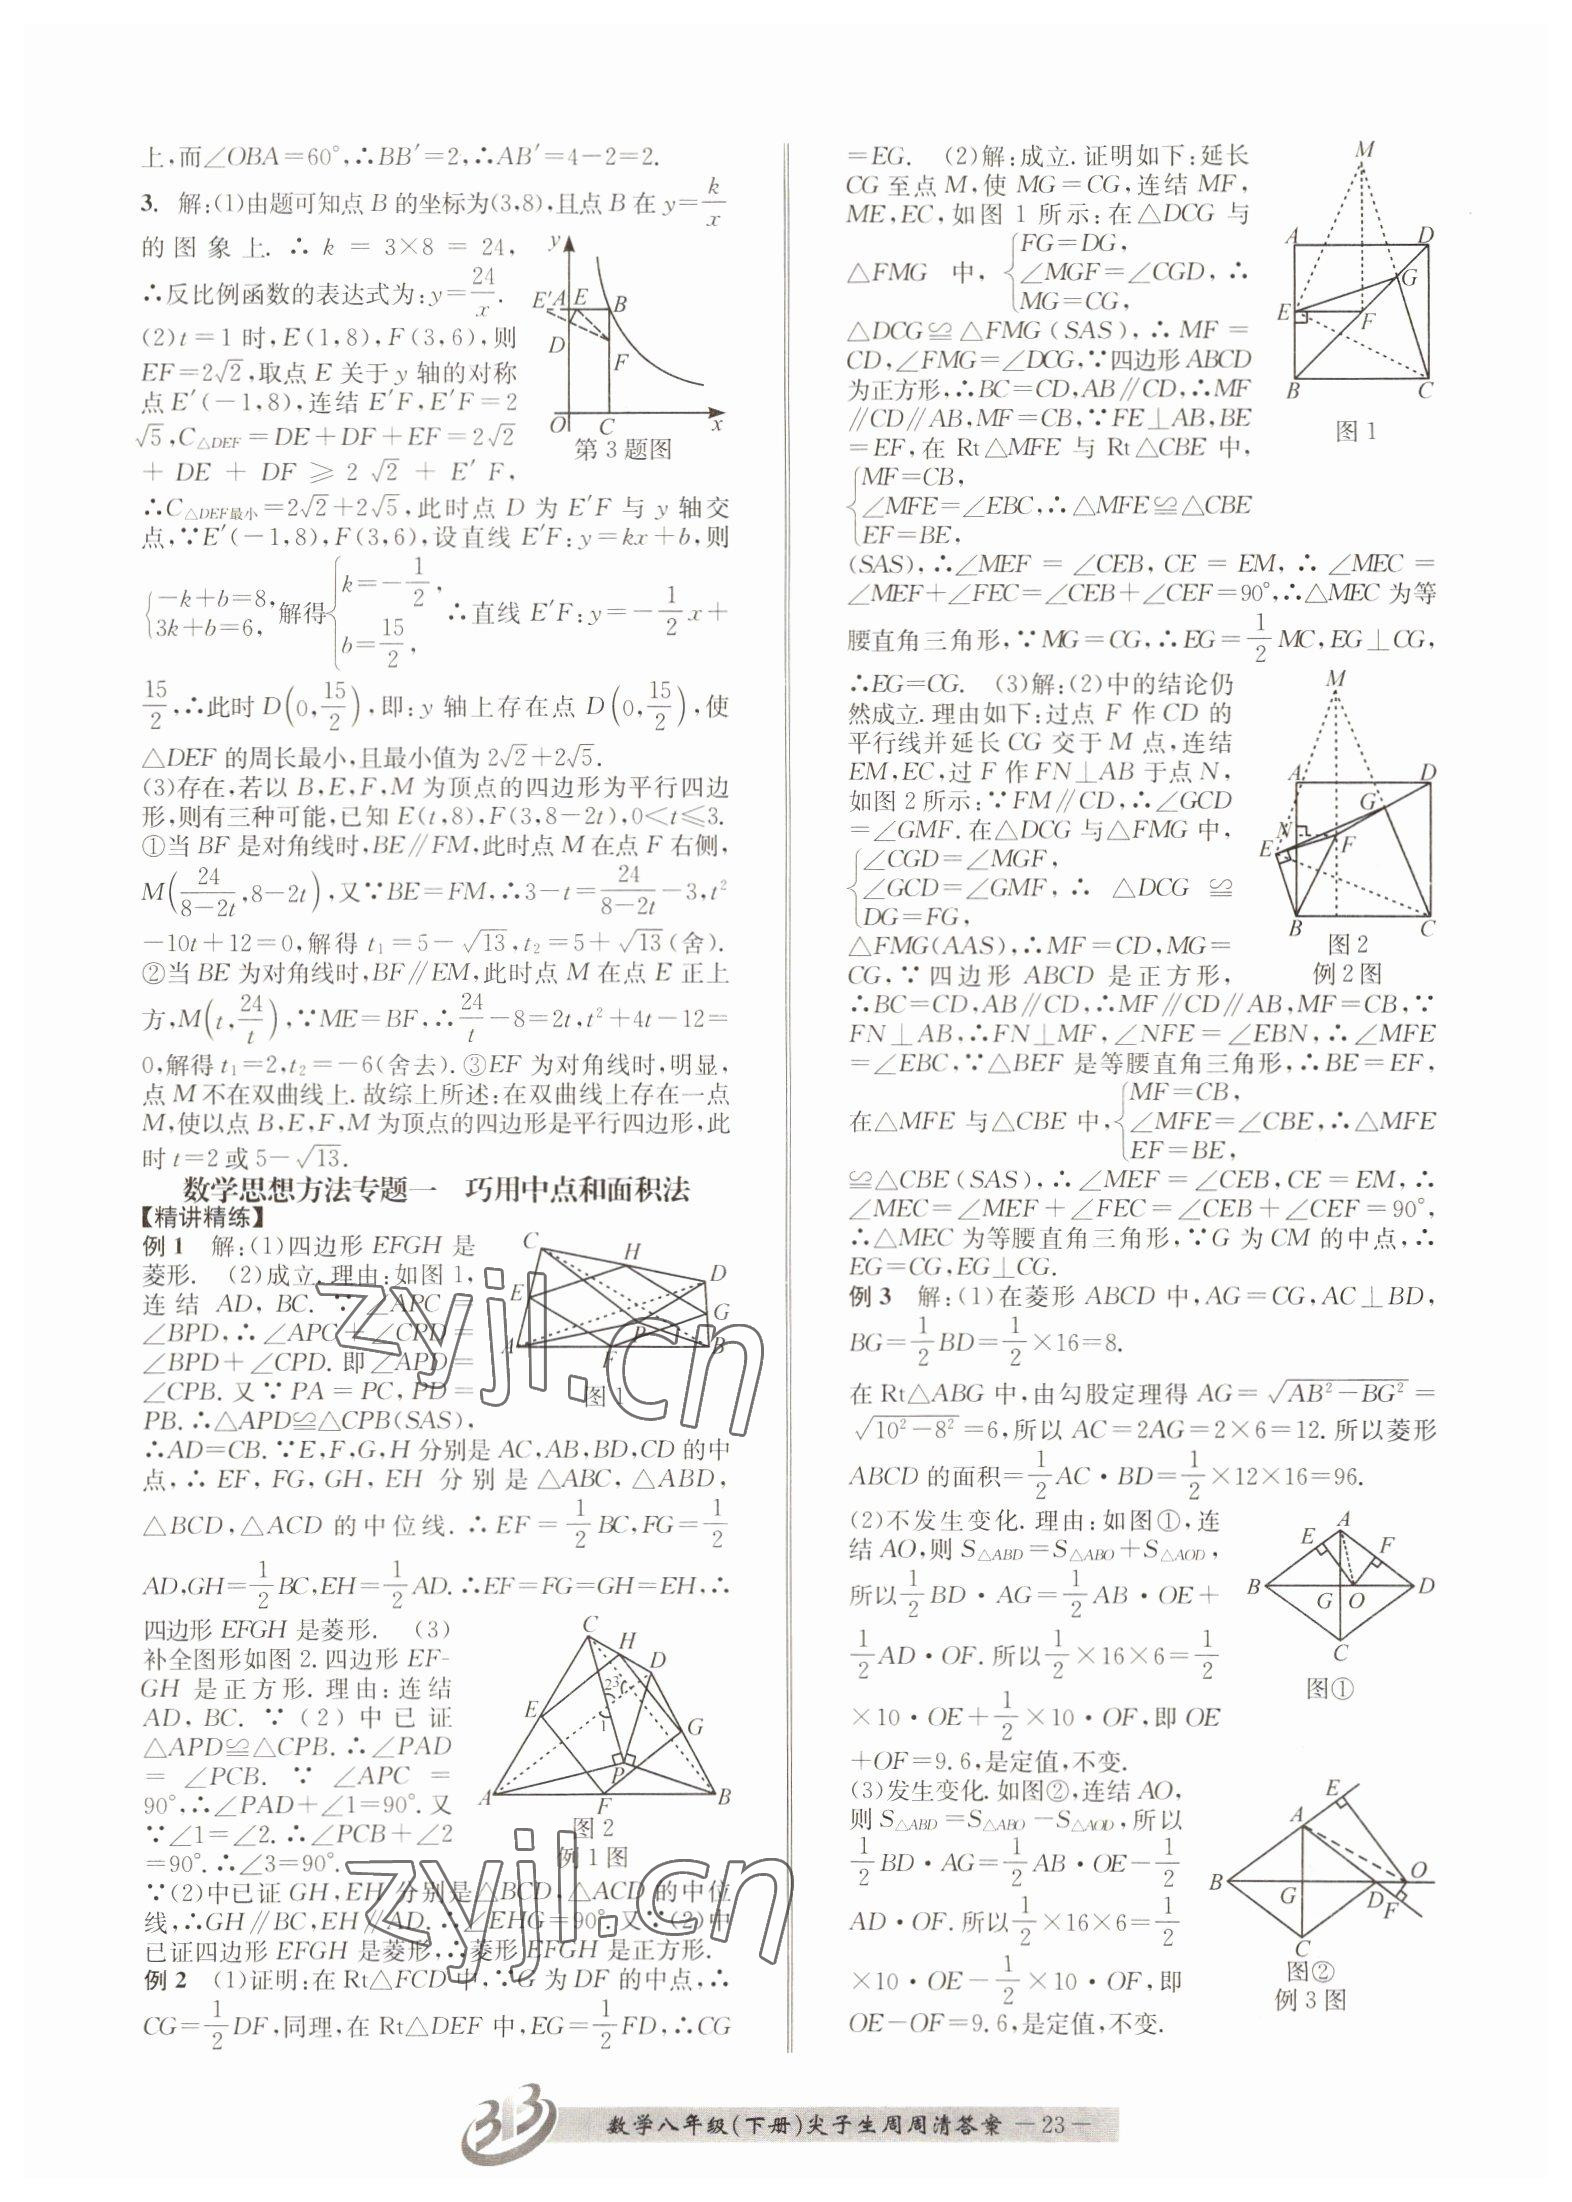 上,而∠OBA=60°,∴BB′=2,∴AB′=4-2=2.
3. 解:(1)由题可知点 B 的坐标为(3,8),且点 B 在 y=k/x
的图象上. ∴ k = 3×8 = 24,
∴反比例函数的表达式为:y=24/x.
(2)t=1 时,E(1,8),F(3,6),则
EF=2√2,取点 E 关于 y 轴的对称
点 E′(-1,8),连结 E′F,E′F=2
√5,C△DEF=DE+DF+EF=2√2
+ DE + DF ⩾ 2 √2 + E′ F,
y
E′ A E B
D
F
O C x
第 3 题图
∴C△DEF最小=2√2+2√5,此时点 D 为 E′F 与 y 轴交
点,∵E′(-1,8),F(3,6),设直线 E′F:y=kx+b,则
{-k+b=8, 3k+b=6, 解得{k=-1/2, b=15/2, ∴直线 E′F:y=-1/2 x+
15/2,∴此时 D(0,15/2),即:y 轴上存在点 D(0,15/2),使
△DEF 的周长最小,且最小值为 2√2+2√5.
(3)存在,若以 B,E,F,M 为顶点的四边形为平行四边
形,则有三种可能,已知 E(t,8),F(3,8-2t),0<t⩽3.
①当 BF 是对角线时,BE∥FM,此时点 M 在点 F 右侧,
M(24/(8-2t),8-2t),又∵BE=FM,∴3-t=24/(8-2t)-3,t²
-10t+12=0,解得 t₁=5-√13,t₂=5+√13(舍).
②当 BE 为对角线时,BF∥EM,此时点 M 在点 E 正上
方,M(t,24/t),∵ME=BF,∴24/t-8=2t,t²+4t-12=
0,解得 t₁=2,t₂=-6(舍去).③EF 为对角线时,明显,
点 M 不在双曲线上.故综上所述:在双曲线上存在一点
M,使以点 B,E,F,M 为顶点的四边形是平行四边形,此
时 t=2 或 5-√13.
数学思想方法专题一 巧用中点和面积法
【精讲精练】
例 1 解:(1)四边形 EFGH 是
菱形. (2)成立.理由:如图 1,
连结 AD, BC. ∵ ∠APC =
∠BPD,∴∠APC+∠CPD=
∠BPD+∠CPD. 即∠APD=
∠CPB. 又∵PA=PC,PD=
PB.∴△APD≌△CPB(SAS),
C H D
E G
A F P B
图 1
∴AD=CB.∵E,F,G,H 分别是 AC,AB,BD,CD 的中
点,∴ EF, FG, GH, EH 分别是△ABC, △ABD,
△BCD,△ACD 的中位线.∴EF=1/2 BC,FG=1/2
AD,GH=1/2 BC,EH=1/2 AD.∴EF=FG=GH=EH,∴
四边形 EFGH 是菱形. (3)
补全图形如图 2.四边形 EF-
GH 是正方形. 理由:连结
AD, BC. ∵ (2) 中已证
△APD≌△CPB.∴∠PAD
= ∠PCB. ∵ ∠APC =
90°,∴∠PAD+∠1=90°.又
∵∠1=∠2.∴∠PCB+∠2
=90°.∴∠3=90°.
C H D
2 3
E 1 G
P
A F B
图 2
例 1 图
∵(2)中已证 GH,EH 分别是△BCD,△ACD 的中位
线,∴GH∥BC,EH∥AD.∴∠EHG=90°.又∵(2)中
已证四边形 EFGH 是菱形,∴菱形 EFGH 是正方形.
例 2 (1)证明:在 Rt△FCD 中,∵G 为 DF 的中点,∴
CG=1/2 DF,同理,在 Rt△DEF 中,EG=1/2 FD,∴CG
=EG. (2)解:成立.证明如下:延长
CG 至点 M,使 MG=CG,连结 MF,
ME,EC,如图 1 所示:在△DCG 与
△FMG 中, {FG=DG, ∠MGF=∠CGD, MG=CG, ∴
△DCG≌△FMG(SAS),∴MF=
CD,∠FMG=∠DCG,∵四边形 ABCD
为正方形,∴BC=CD,AB∥CD,∴MF
∥CD∥AB,MF=CB,∵FE⊥AB,BE
=EF,在 Rt△MFE 与 Rt△CBE 中,
{MF=CB, ∠MFE=∠EBC, EF=BE, ∴△MFE≌△CBE
M
A D
G
E F
B C
图 1
(SAS),∴∠MEF=∠CEB,CE=EM,∴∠MEC=
∠MEF+∠FEC=∠CEB+∠CEF=90°,∴△MEC 为等
腰直角三角形,∵MG=CG,∴EG=1/2 MC,EG⊥CG,
∴EG=CG. (3)解:(2)中的结论仍
然成立.理由如下:过点 F 作 CD 的
平行线并延长 CG 交于 M 点,连结
EM,EC,过 F 作 FN⊥AB 于点 N,
如图 2 所示:∵FM∥CD,∴∠GCD
=∠GMF.在△DCG 与△FMG 中,
{∠CGD=∠MGF, ∠GCD=∠GMF, DG=FG, ∴ △DCG ≌
△FMG(AAS),∴MF=CD,MG=
CG,∵四边形 ABCD 是正方形,
M
A D
G
N F
E
B C
图 2
例 2 图
∴BC=CD,AB∥CD,∴MF∥CD∥AB,MF=CB,∵
FN⊥AB,∴FN⊥MF,∠NFE=∠EBN,∴∠MFE
=∠EBC,∵△BEF 是等腰直角三角形,∴BE=EF,
在△MFE 与△CBE 中,{MF=CB, ∠MFE=∠CBE, EF=BE, ∴△MFE
≌△CBE(SAS),∴∠MEF=∠CEB,CE=EM,∴
∠MEC=∠MEF+∠FEC=∠CEB+∠CEF=90°,
∴△MEC 为等腰直角三角形,∵G 为 CM 的中点,∴
EG=CG,EG⊥CG.
例 3 解:(1)在菱形 ABCD 中,AG=CG,AC⊥BD,
BG=1/2 BD=1/2×16=8.
在 Rt△ABG 中,由勾股定理得 AG=√(AB²-BG²)=
√(10²-8²)=6,所以 AC=2AG=2×6=12.所以菱形
ABCD 的面积=1/2 AC·BD=1/2×12×16=96.
(2)不发生变化.理由:如图①,连
结 AO,则 S△ABD=S△ABO+S△AOD,
所以 1/2 BD·AG=1/2 AB·OE+
1/2 AD·OF.所以 1/2×16×6=1/2
×10·OE+1/2×10·OF,即 OE
+OF=9.6,是定值,不变.
A
E F
B G O D
C
图①
(3)发生变化.如图②,连结 AO,
则 S△ABD=S△ABO-S△AOD,所以
1/2 BD·AG=1/2 AB·OE-1/2
AD·OF.所以 1/2×16×6=1/2
×10·OE-1/2×10·OF,即
OE-OF=9.6,是定值,不变.
E
A
B G D F O
C
图②
例 3 图
zyjl.cn
zyjl.cn
数学八年级(下册)尖子生周周清答案 -23-